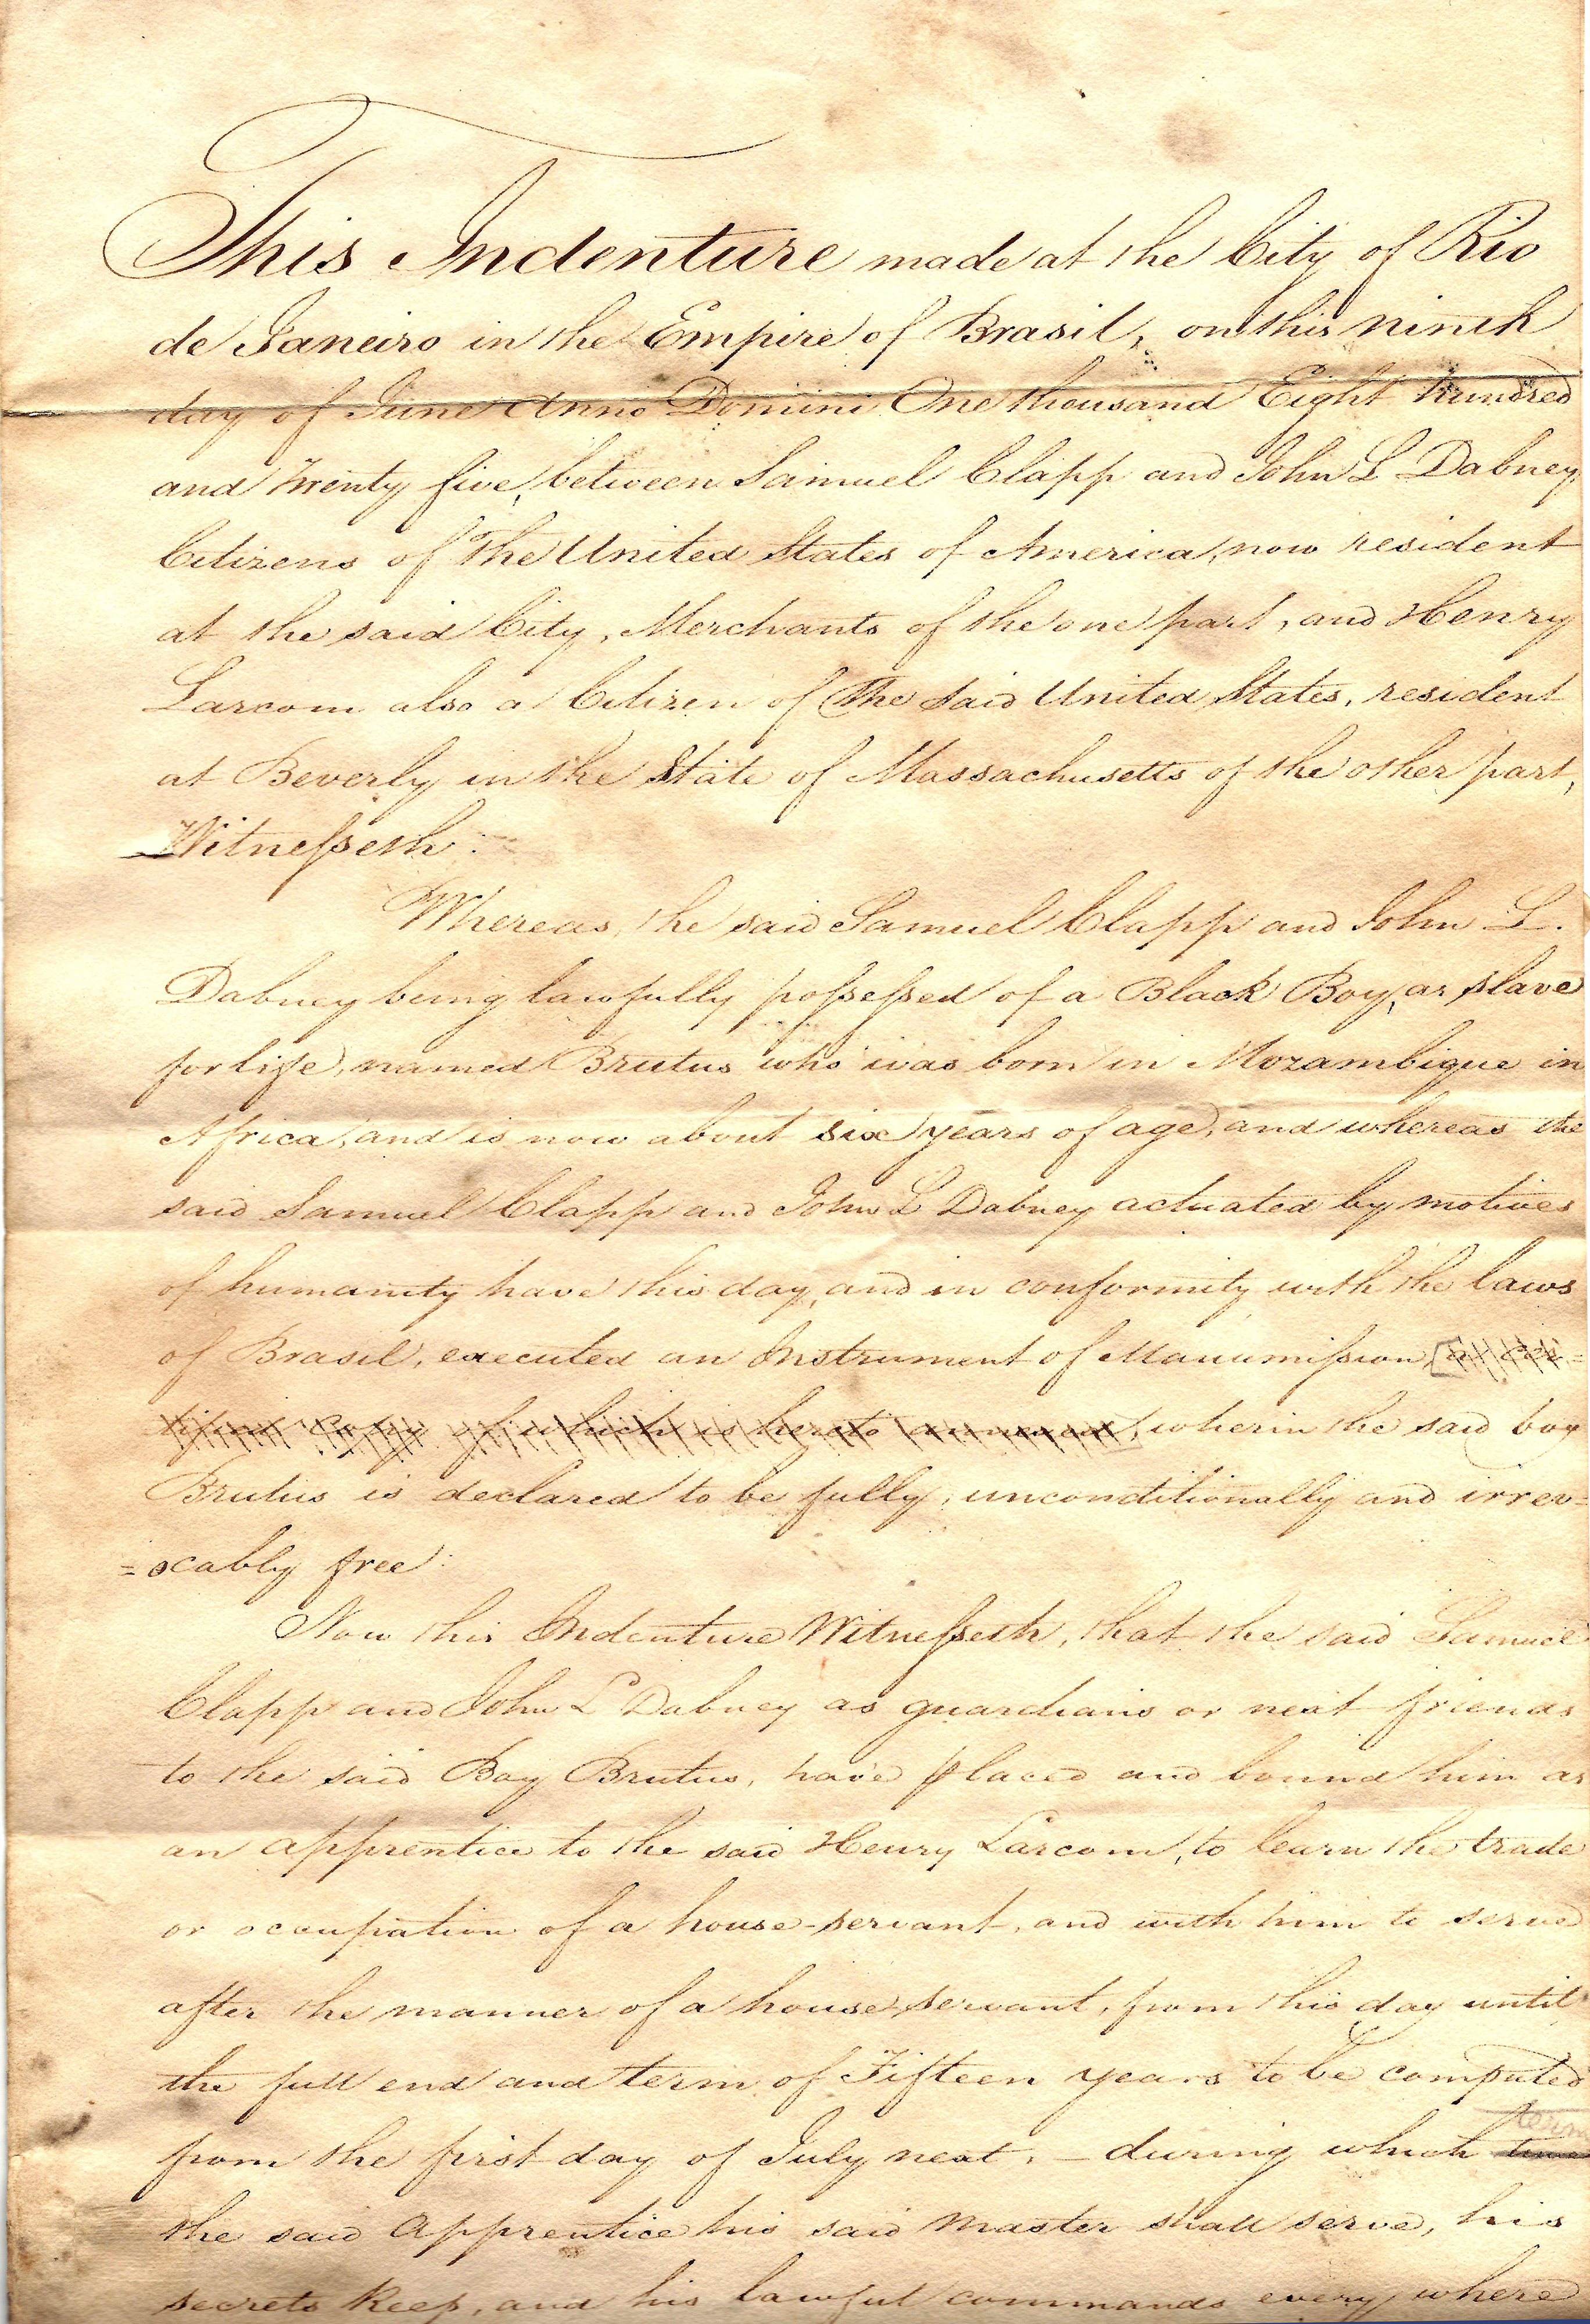 This Indenture made at the City of Rio
de Janeiro in the Empire of Brasil, on this ninth
day of June Anno Domini One thousand Eight hundred
and Twenty five, between Samuel Clapp and John L Dabney
Citizens of The United States of America, now resident
at the said City, Merchants of the one part, and Henry
Larcom also a Citizen of The said United States, resident
at Beverly in the State of Massachusetts of the other part,
Witnesseth:
Whereas, the said Samuel Clapp and John L.
Dabney being lawfully possessed of a Black Boy, as slave
for life, named Brutus who was born in Mozambique in
Africa, and is now about six years of age, and whereas the
said Samuel Clapp and John L Dabney actuated by motives
of humanity have this day, and in conformity with the laws
of Brasil, executed an Instrument of Manumission
Copy of which is hereto annexed, wherin the said boy
Brutus is declared to be fully, unconditionally and irrev=
=ocably free:
Now this Indenture Witnesseth, that the said Samuel
Clapp and John L Dabney as guardians or next friends
to the said Boy Brutus, have placed and bound him as
an apprentice to the said Henry Larcom, to learn the trade
or occupation of a house-servant, and with him to serve
after the manner of a house servant, from this day until
the full end and term of Fifteen years to be computed
from the first day of July next, - during which term
the said apprentice his said master shall serve, his
secrets keep, and his lawful commands every where